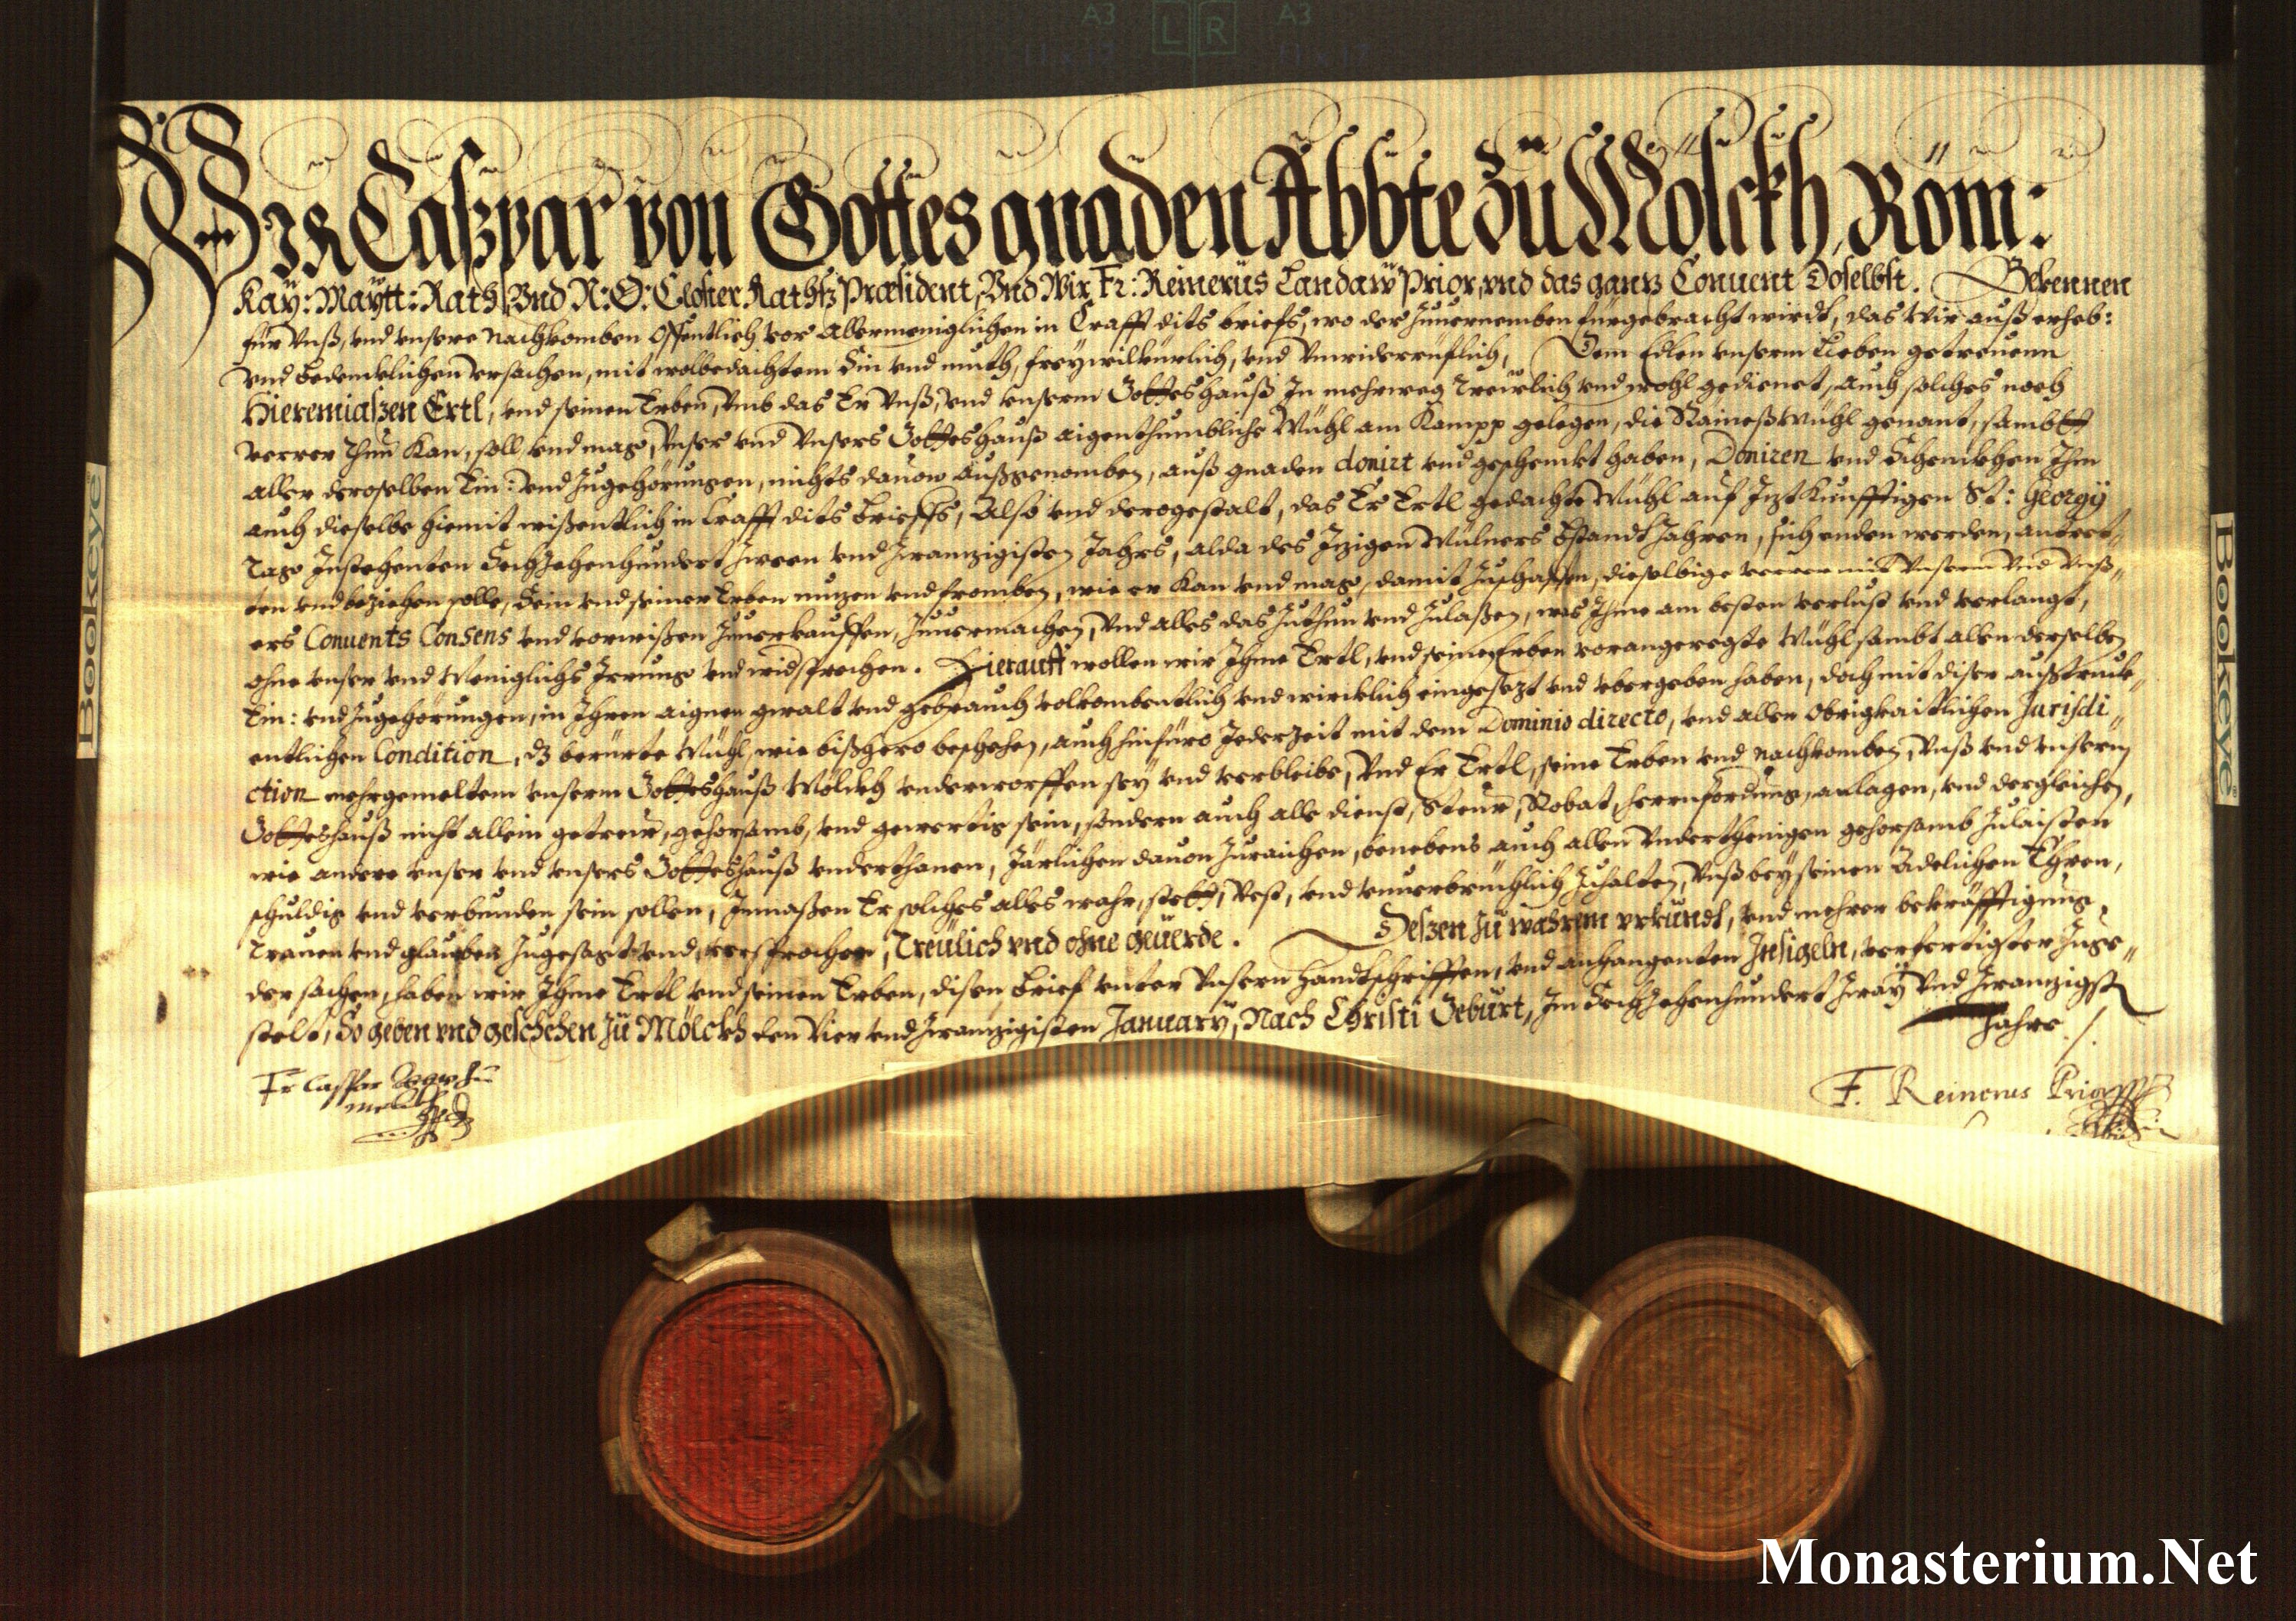 WIR Caspar von Gottes gnaden Abbte zu Mölckh, Röm:
Kaÿ: Maÿtt: Rath, Vnd N: Ö: Closter Raths Præsident, Vnd Wir Fr: Reinerus Landaw Prior, vnd das gantz Conuent Doselbst. Bekennen
für Vnß, vnd vnsere Nachkomben Offentlich vor Allermeniglichen in Crafft dits briefs, wo der Zuuernemben fürgebracht wirdt, das Wir auß erheb:
vnd bedencklichen Vrsachen, mit wolbedachtem Sin vnd muth, freywilkürlich, vnd Vnwiderrüeflich, Dem Edlen vnserm Lieben getreuenn
Hieremiaßen Ertl, vnd seinen Erben, Vmb das Er Vnß, vnd vnserm Gottshauß In mehrweg Treülich vnd wohl gedienet, auch solches noch
verrer Thun Kan, soll, vnd mag, Vnser vnd Vnsers Gottshauß aigenthumbliche Mühl am Kampp gelegen, die Raineßmühl genant, sambtt
aller deroselben Ein: vnd Zugehörungen, nichts dauon Außgenomben, auß gnaden donirt vnd geschenckt haben, Doniren vnd Schenckhen Ihm
auch dieselbe hiemit wißentlich in Crafft dits Brieffs, Also vnd derogestalt, das Er Ertl gedachte Mühl auf Jzt Künfftigen St: Georgÿ
Tage Instehenten Sechzehenhundert Zween vnd Zwainzigisten Jahrs, alda des Jezigen Mülners Bstandt Jahren, sich enden werden, antret„
ten vnd beziehen solle, Sein vnd seiner Erben nuzen vnd fromben, wie er Kan vnd mag, damit Zuschaffen, dieselbige verrer mit Vnserm Vnd Vnß„
ers Conuents Consens vnd vorwißen Zuuerkauffen, Zuuermachen, Vnd alles das Zuthun vnd Zulaßen, was Ihme am besten verlust vnd verlangt,
ohne vnser vnd Meniglichs Irrung vnd widsprechen. Hierauff wollen wir Ihme Ertl, vnd seinen Erben vorangeregte Mühl sambt allen derselben
Ein: vnd Zugehörungen, in Ihren aignen gwalt vnd gebrauch volkombentlich vnd wircklich eingesezt vnd vbergeben haben, doch mit diser außtruck„
entlichen Condition, dz berürte Mühl, wie bißhero beschehen, auch hinfüro Jederzeit mit dem Dominio directo, vnd aller Obrigkaitlichen Jurisdi„
ction mehrgemeltem vnserm Gottshauß Mölckh vnderworffen seÿ vnd verbleibe, Vnd Er Ertl, seine Erben vnd nachkomben, Vnß vnd vnserm
Gottshauß nicht allein getreu, gehorsamb, vnd gewertig sein, sondern auch alle dienst, Steur, Robat, herrnforderung, anlagen, vnd dergleichen,
wie andere vnser vnd vnsers Gottshauß vnderthanen, Järlichen dauon Zuraichen, benebens auch allen Vnderthenigen gehorsamb Zulaisten
schuldig vnd verbunden sein sollen, Inmaßen Er solches alles wahr, stett, Vest, vnd vnuerbrüchlich Zuhalten, Vnß bey seinen Adelichen Ehren,
Trauen vnd glauben Zugesagt vnd versprochen, Treülich vnd ohne geuerde. Deßen Zu wahrem vrkundt, vnd mehrer bekräfftigung,
der sachen, haben wir Ihme Ertl vnd seinen Erben, disen Brief vnter Vnsern Handtschrifften, vnd anhangenten Insigeln, verfertigter Zuge„
stelt, So geben vnd geschehen Zu Mölckh den Vier vnd Zwainzigisten January, Nach Christi Geburt, Im Sechzehenhundert Zwaÿ Vnd Zwainzigist
Jahre /.
Fr Caspar Zu
F. Reinerus Prior
Bookeye
Bookeye
A3 L R A3
Monasterium.Net